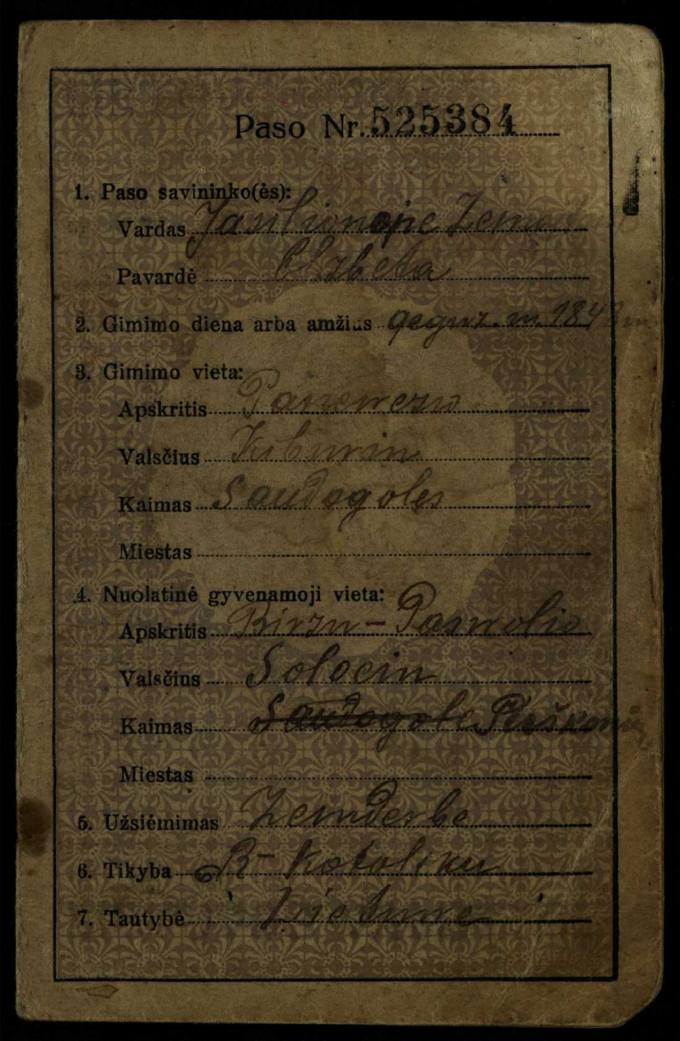 Paso Nr. 525384
1. Paso savininko(ės):
Vardas
Pavardė Elzbeta
2. Gimimo diena arba amžius geguz. m. 184
3. Gimimo vieta:
Apskritis Panevezio
Valsčius
Kaimas Saudogoles
Miestas
4. Nuolatinė gyvenamoji vieta:
Apskritis Birzu - Pasvolio
Valsčius Solociu
Kaimas Saudogole
Miestas
5. Užsiėmimas Zemderbe
6. Tikyba R- Katoliku
7. Tautybė Lietuve